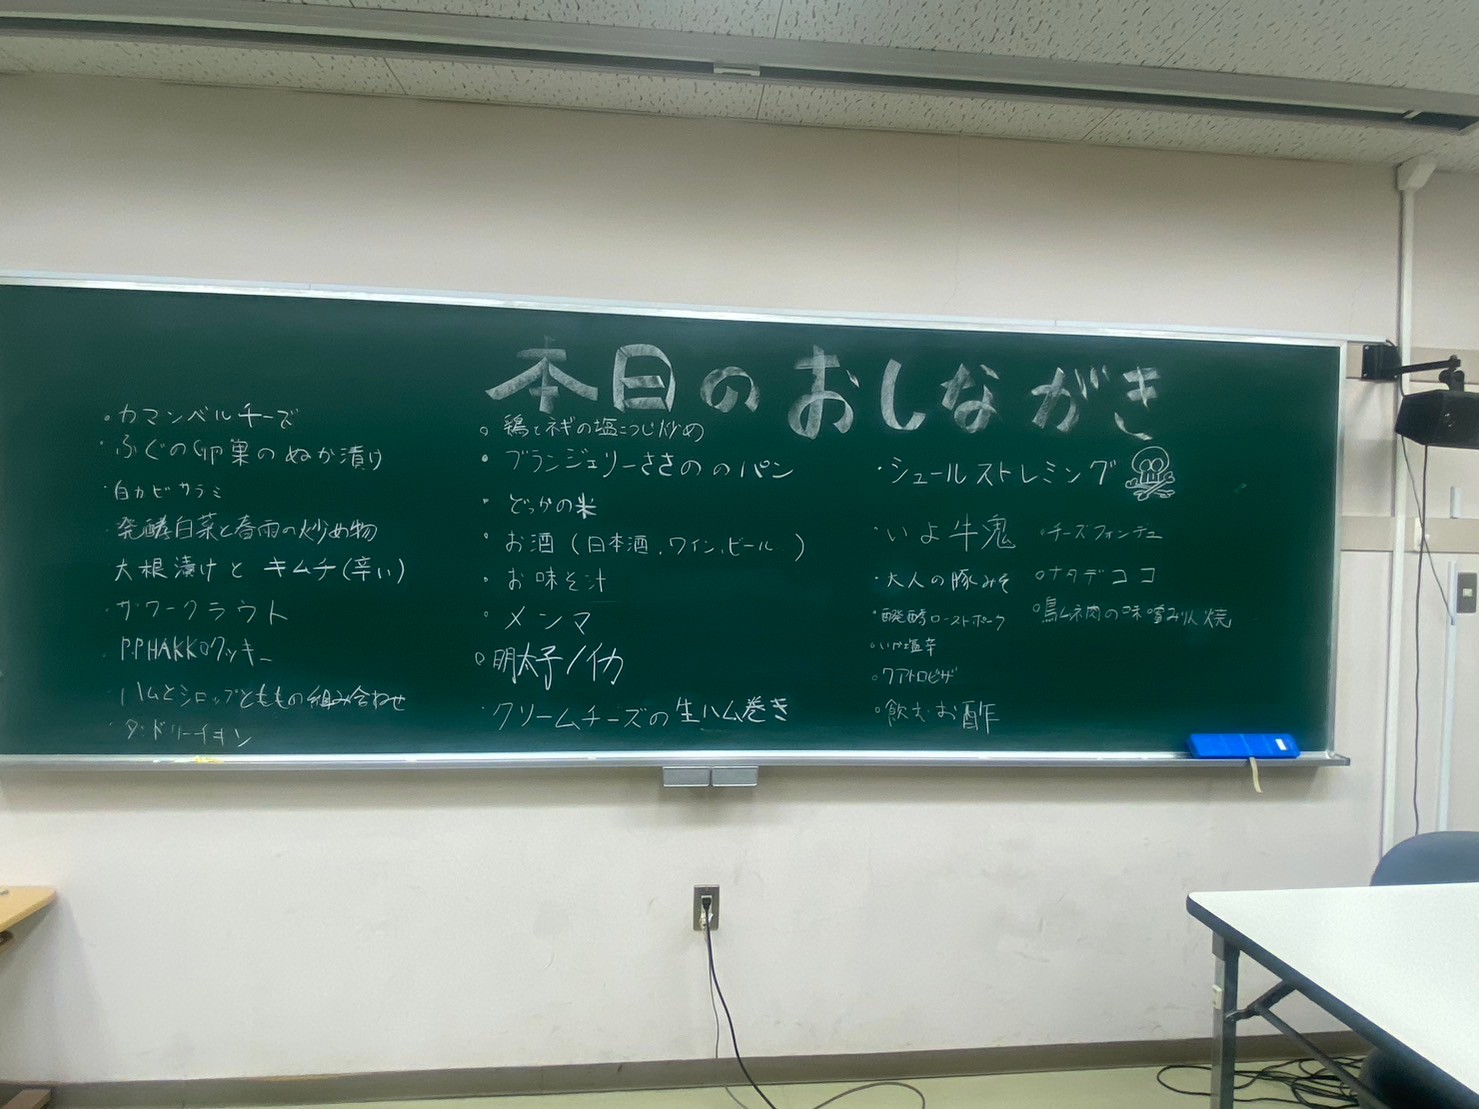 本日のおしながき
・カマンベルチーズ
・ふぐの卵巣のぬか漬け
・白カビサラミ
・発酵白菜と春雨の炒め物
大根漬けと キムチ(辛い)
・ザワークラウト
・P.P.HAKKOクッキー
・ハムとシロップとももの組み合わせ
・タンドリーチキン
。鶏とネギの塩こうじ炒め
・ブランジェリーささののパン
・どっかの米
・お酒(日本酒、ワイン、ビール)
・お味そ汁
・メンマ
。明太子/イカ
・クリームチーズの生ハム巻き
・シュールストレミング
・いよ牛鬼
・大人の豚みそ
・醗酵ローストポーク
。いか塩辛
。クアトロピザ
。飲むお酢
。チーズフォンデュ
。ナタデココ
。鳥ムネ肉の味噌みりん焼